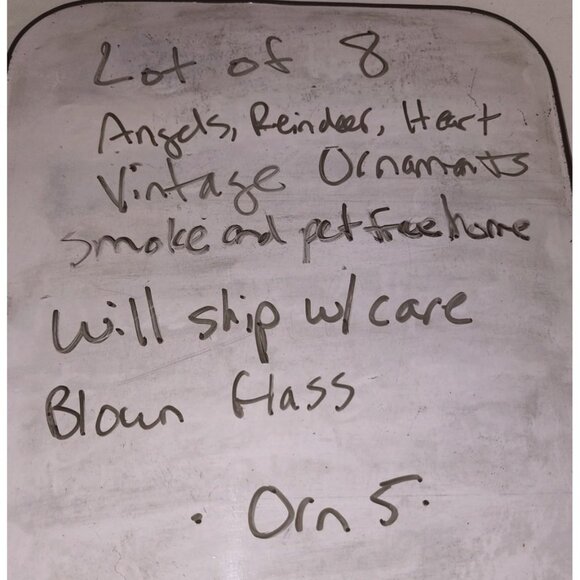 Lot of 8
Angels, Reindeer, Heart
Vintage Ornaments
smoke and pet free home
Will ship w/ care
Blown Glass
. Orn 5.